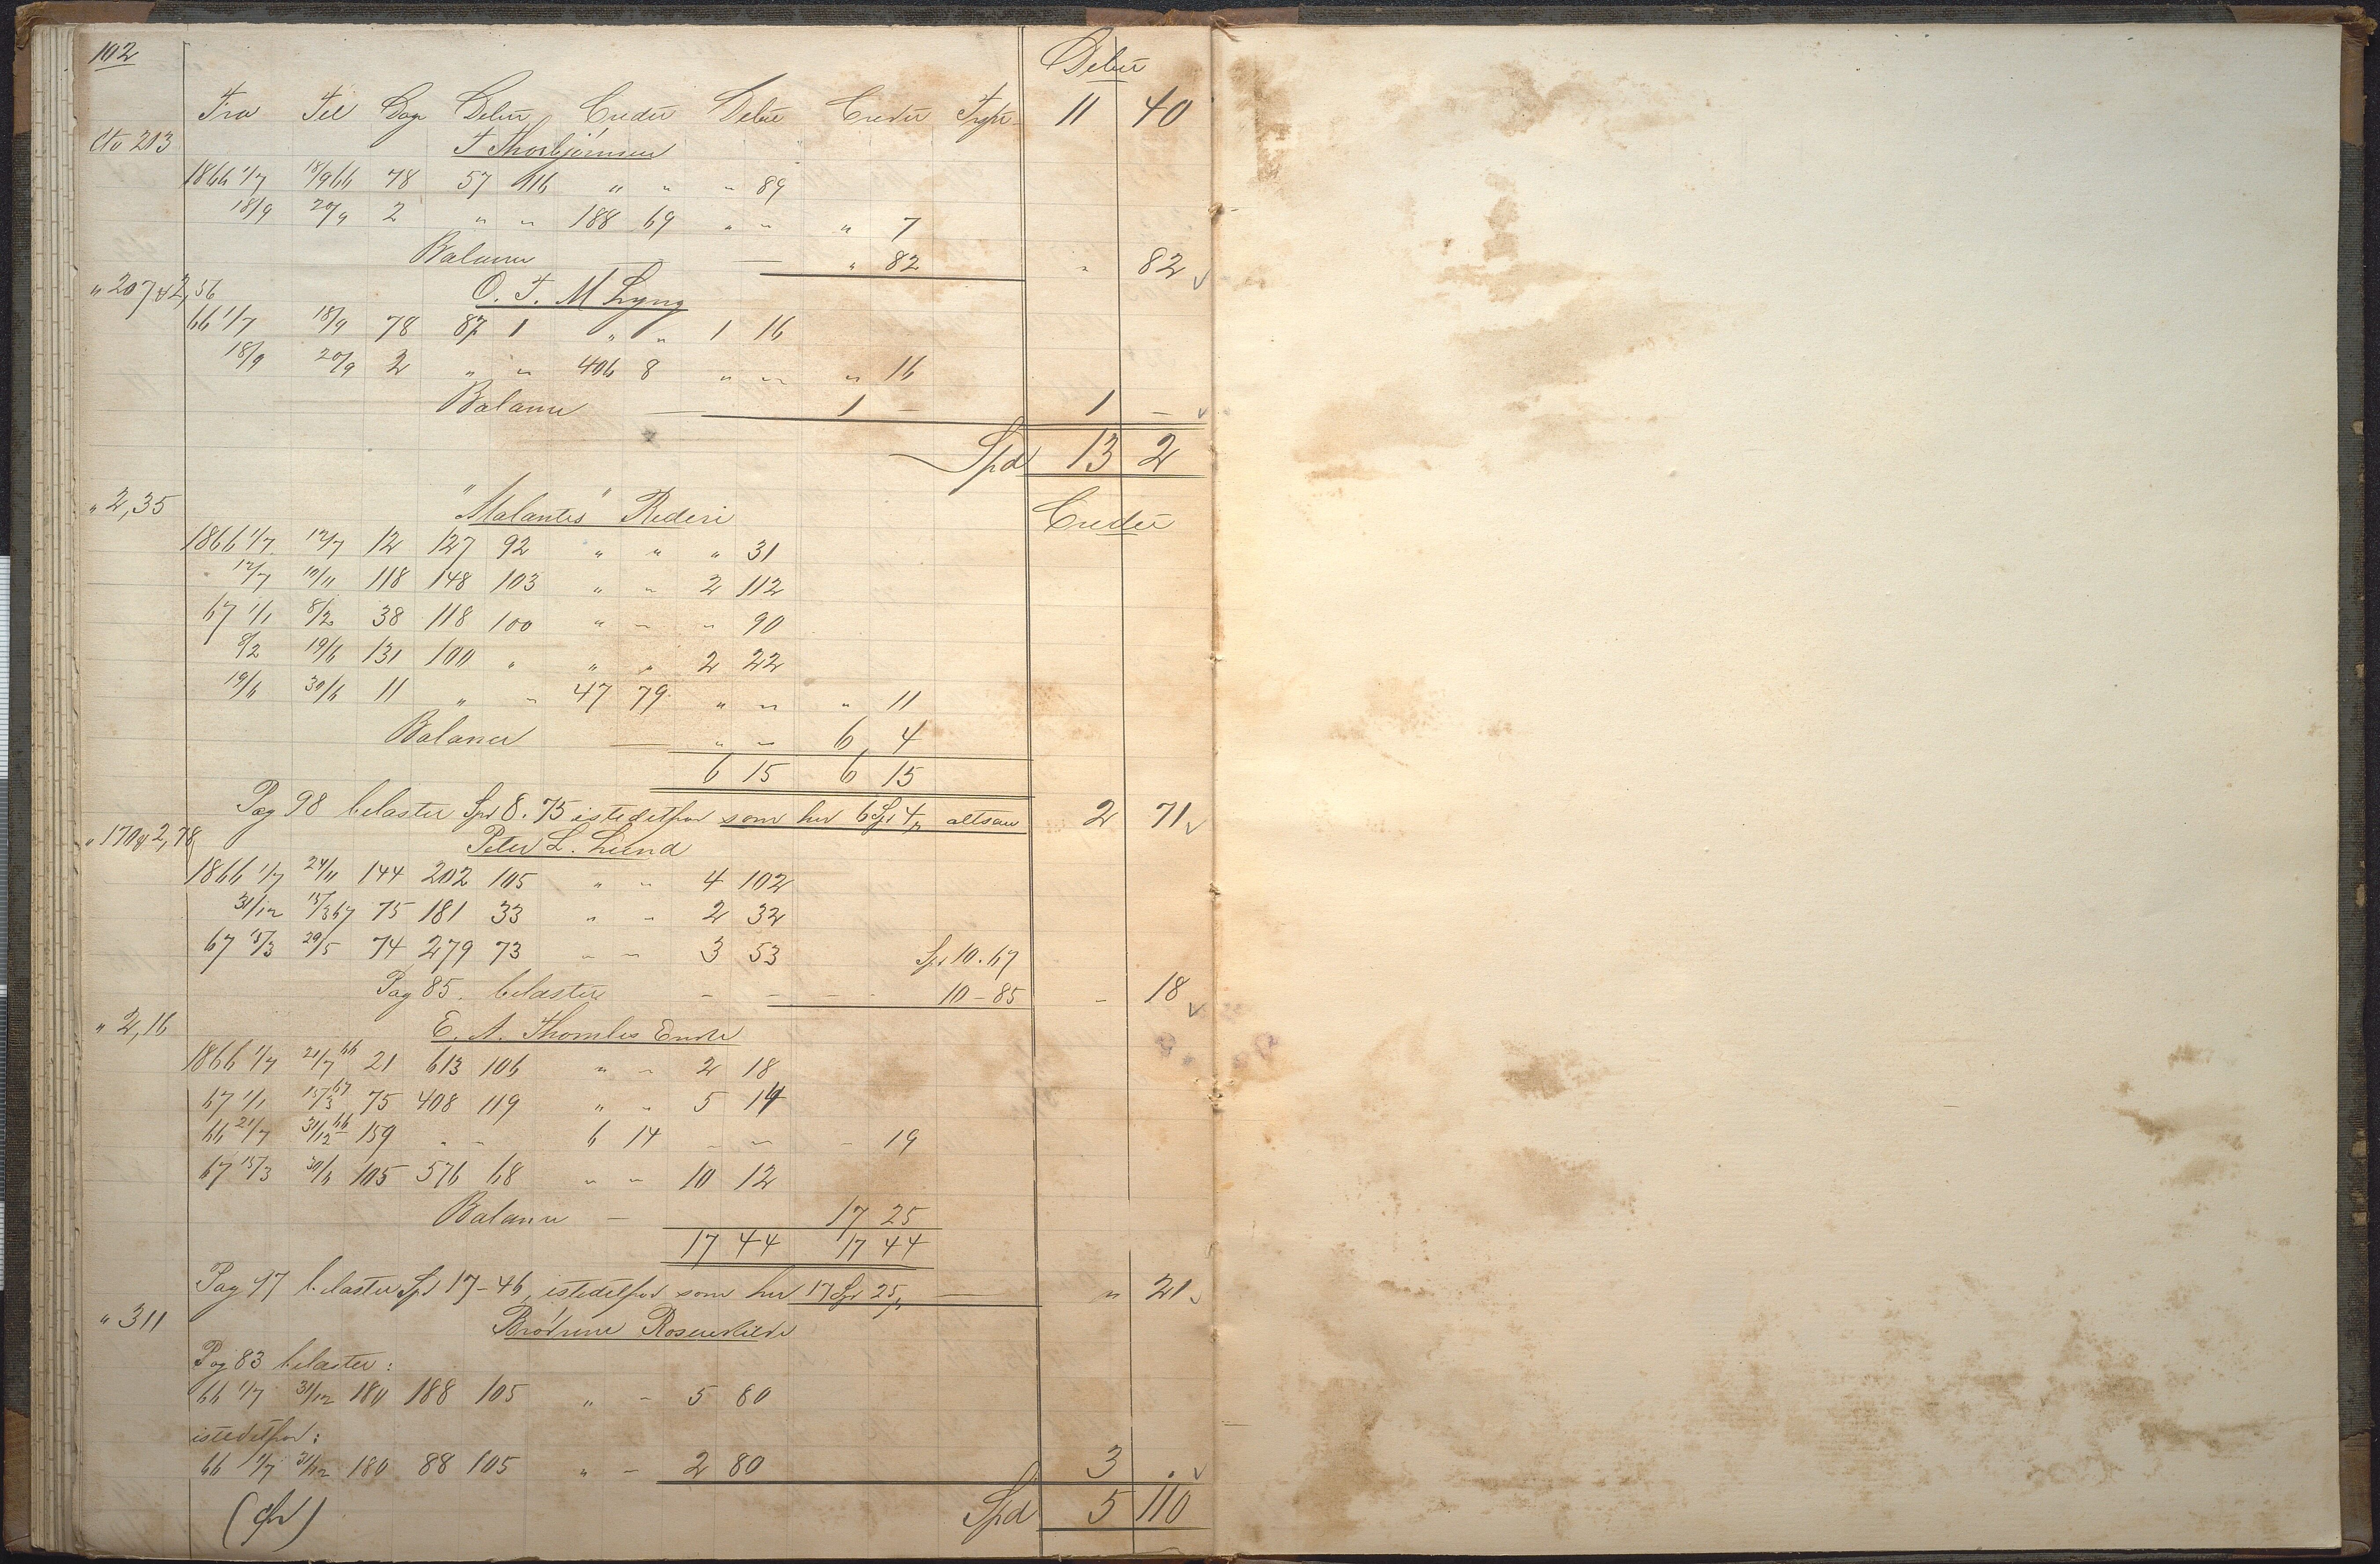 102 Debet
Fra Til Dage Debet Credit Debet Credit 11 40
Cto 213 T Thorbjørnsen
1866 1/7 18/9 66 78 57 116 " " " 89
18/9 20/9 2 " " 188 69 " " " 7
Balance — " 82 " 82
" 207 & 2,56 O. T. M Lyng
66 1/7 18/9 78 87 1 " " 1 16
18/9 20/9 2 " " 406 8 " " " 16
Balance — 1 — 1 —
Spd 13 2
" 2,35 "Atalantes" Rederi Credit
1866 1/7 12/7 12 127 92 " " " 31
12/7 10/11 118 148 103 " " 2 112
67 1/1 8/2 38 118 100 " " " 90
8/2 19/6 131 100 " " " 2 22
19/6 30/6 11 " " 47 79 " " " 11
Balance — " " 6 4
6 15 6 15
Pag 98 belastet Spd 8.75 istedetfor som her 6 Spd 4 altsaa 2 71
" 170 & 2,78 Peter L. Lund
1866 1/7 24/11 144 202 105 " " 4 102
31/12 15/3 67 75 181 33 " " 2 32
67 15/3 29/5 74 279 73 " " 3 53 Spd 10.67
Pag 85. belastet — — — — 10 – 85 " 18
" 2,16 E. A. Thomles Enke
1866 1/7 21/7 66 21 613 106 " " 2 18
67 1/1 15/3 67 75 408 119 " " 5 14
66 21/7 31/12 66 159 " " 6 14 " " " 19
67 15/3 30/6 105 576 68 " " 10 12
Balance — 17 25
17 44 17 44
Pag 97 belastet Spd 17–46, istedetfor som her 17 Spd 25 — " 21
" 311 Brødrene Rosenkilde
Pag 83 belastet:
66 1/7 31/12 180 188 105 " " 5 80
istedetfor:
66 1/7 31/12 180 88 105 " " 2 80 3 .
Spd 5 110